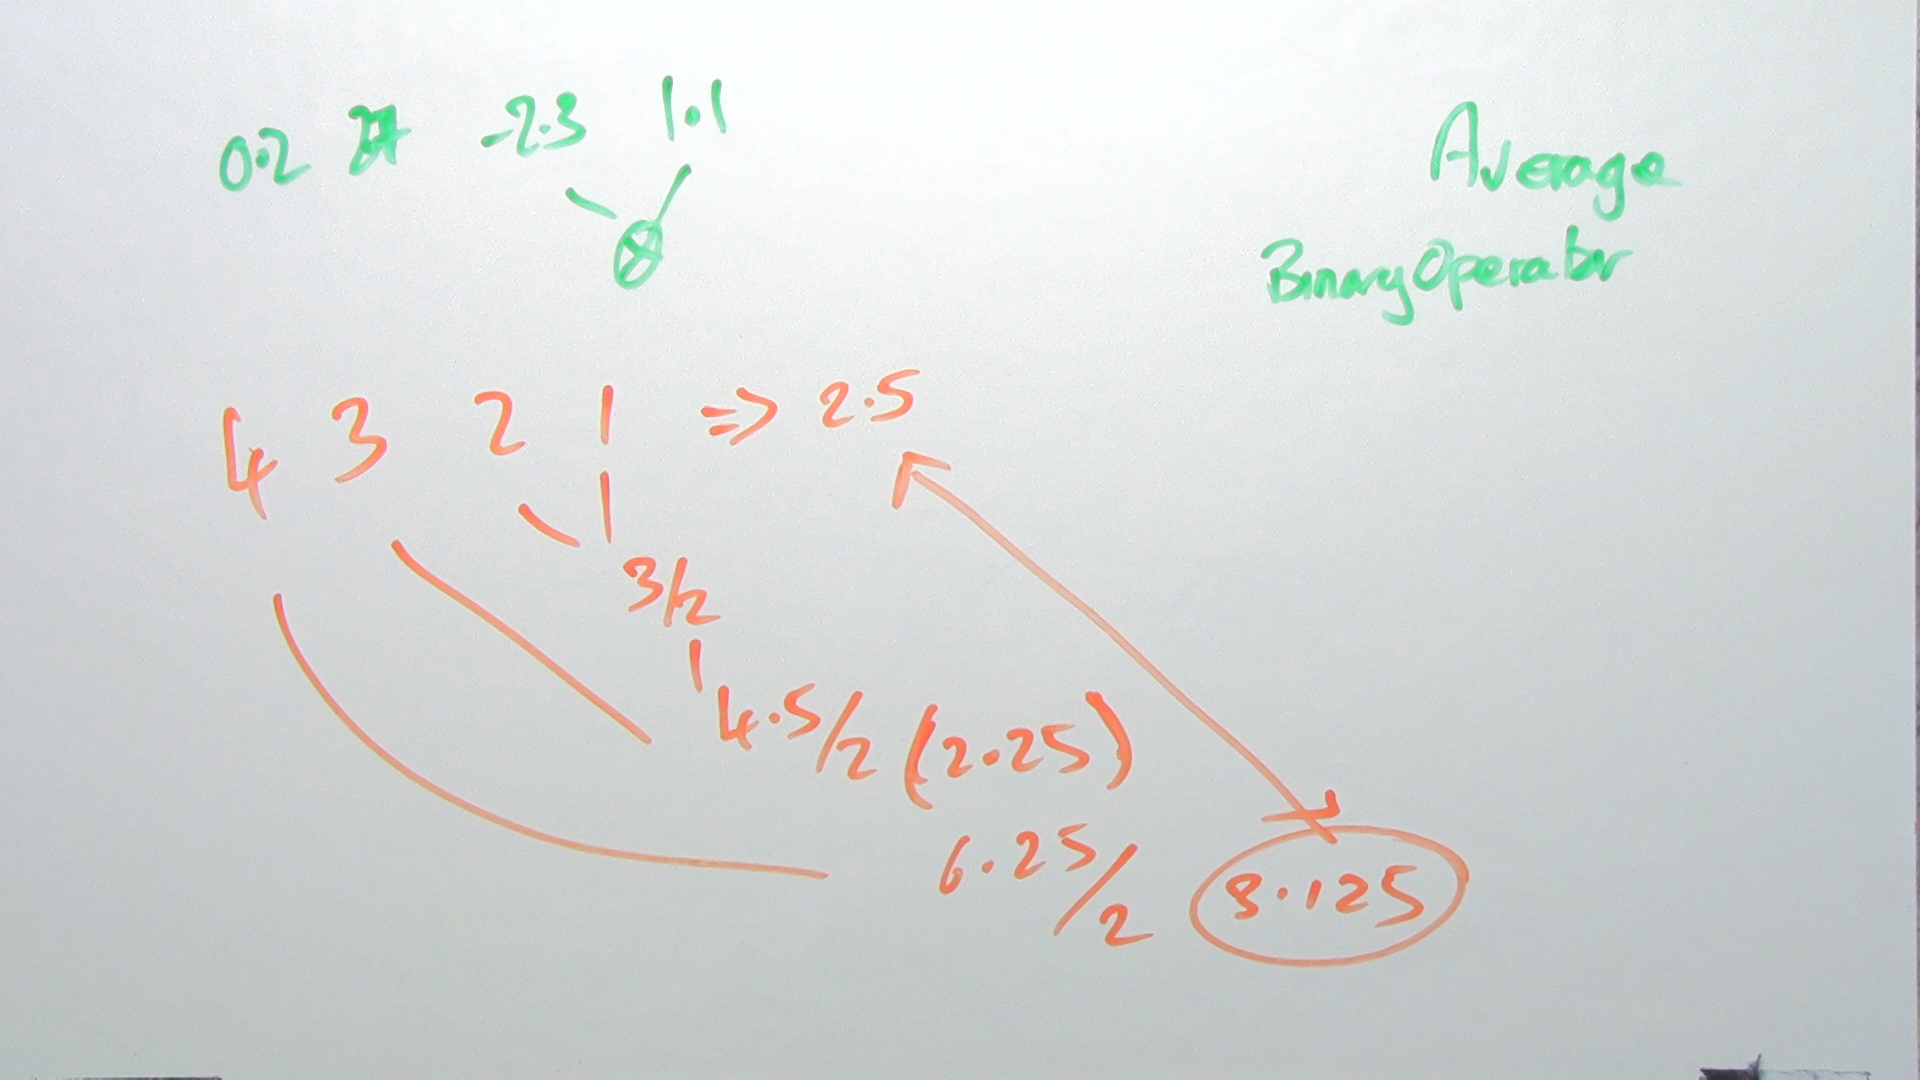 0.2 -2.3 1.1
Average
BinaryOperator
4 3 2 1 => 2.5
3/2
4.5/2 (2.25)
6.25/2 3.125